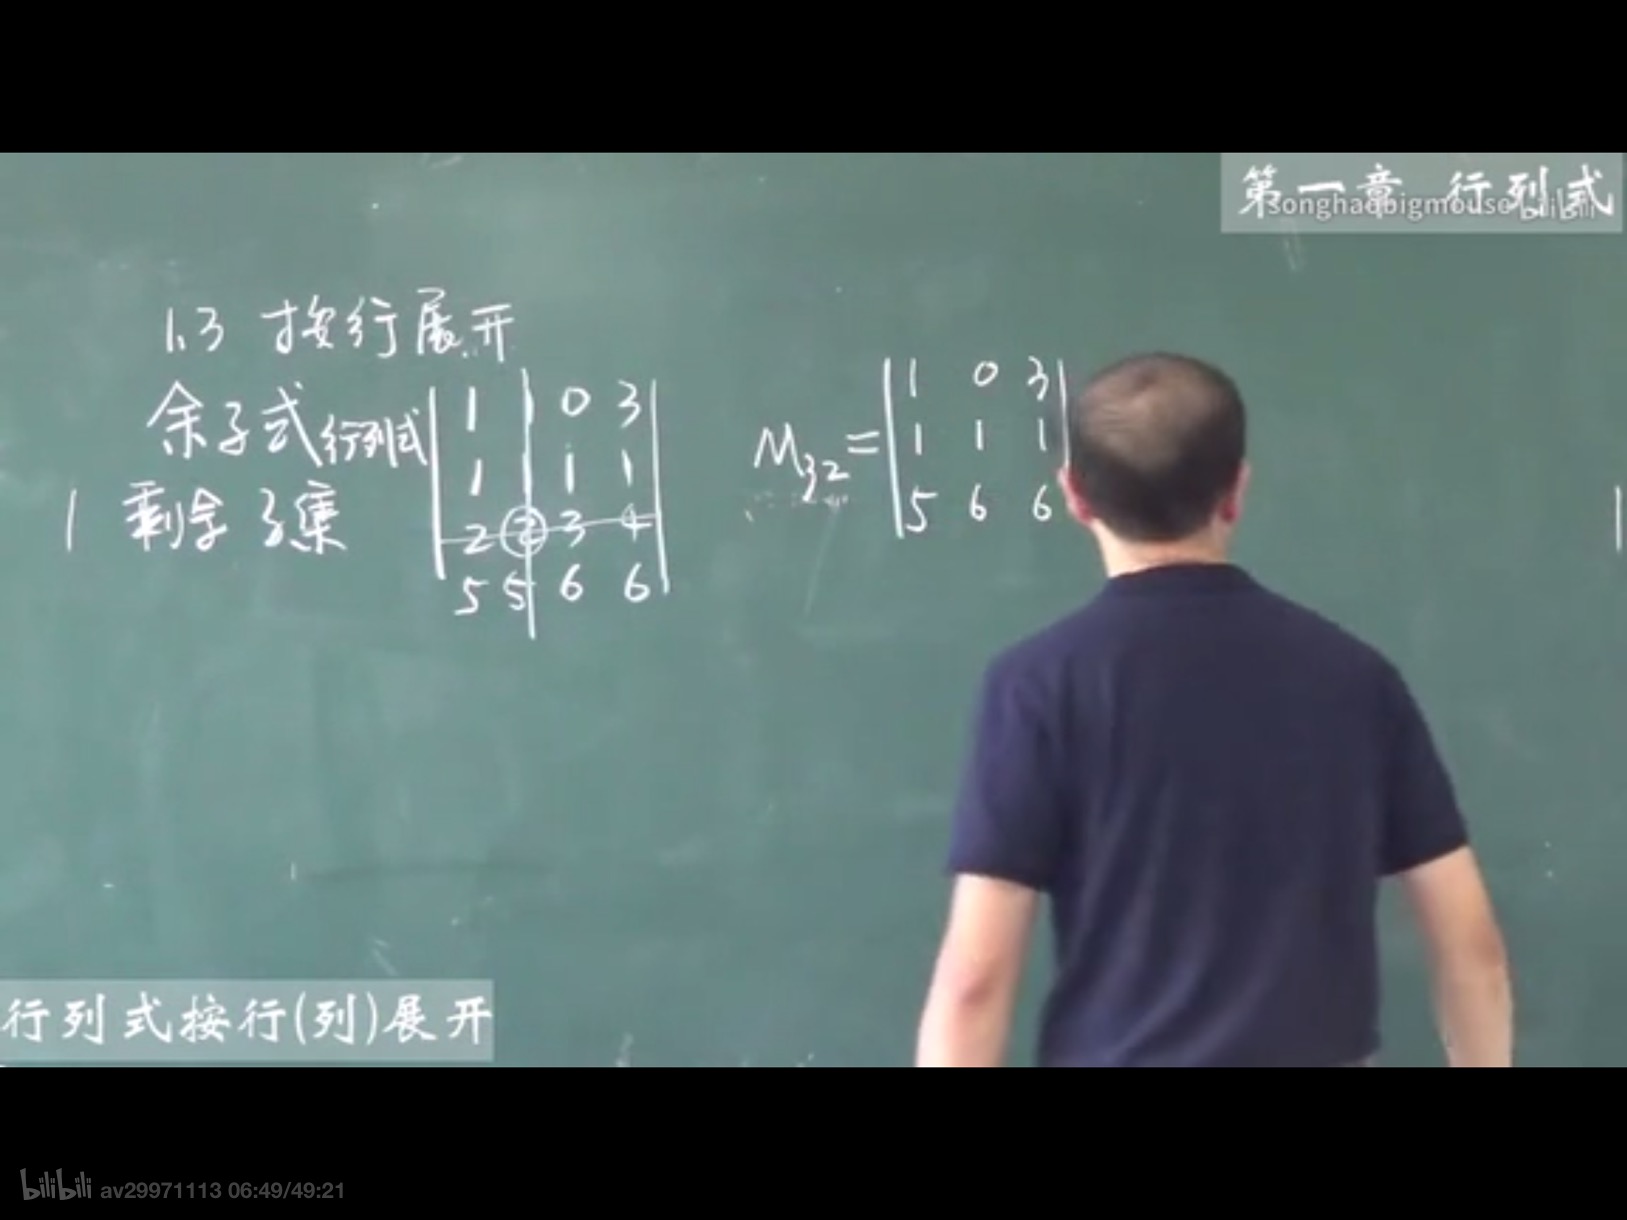 第一章 行列式
songhaobigmouse bilibili
1.3 按行展开
余子式 行列式
1 剩余 子集
1 1 0 3
1 1 1 1
2 2 3 4
5 5 6 6
M32 =
1 0 3
1 1 1
5 6 6
行列式按行(列)展开
bilibili av29971113 06:49/49:21